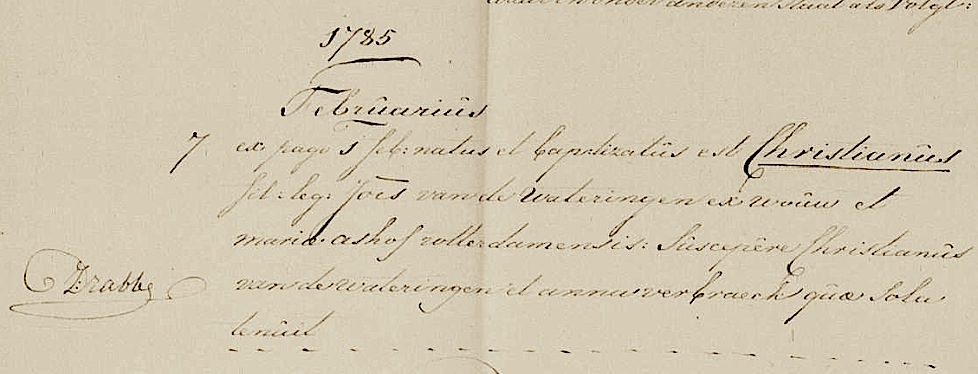 anderen staat als Volgt:
1785
Februarius
7. ex pago 5 feb: natus et baptizatus est Christianus
fil: leg: Joes van de wateringen ex wouw et
maria ashof rotterdamensis: Suscepere Christianus
Drabbe van de wateringen et anna verbraeck quae Sola
tenuit